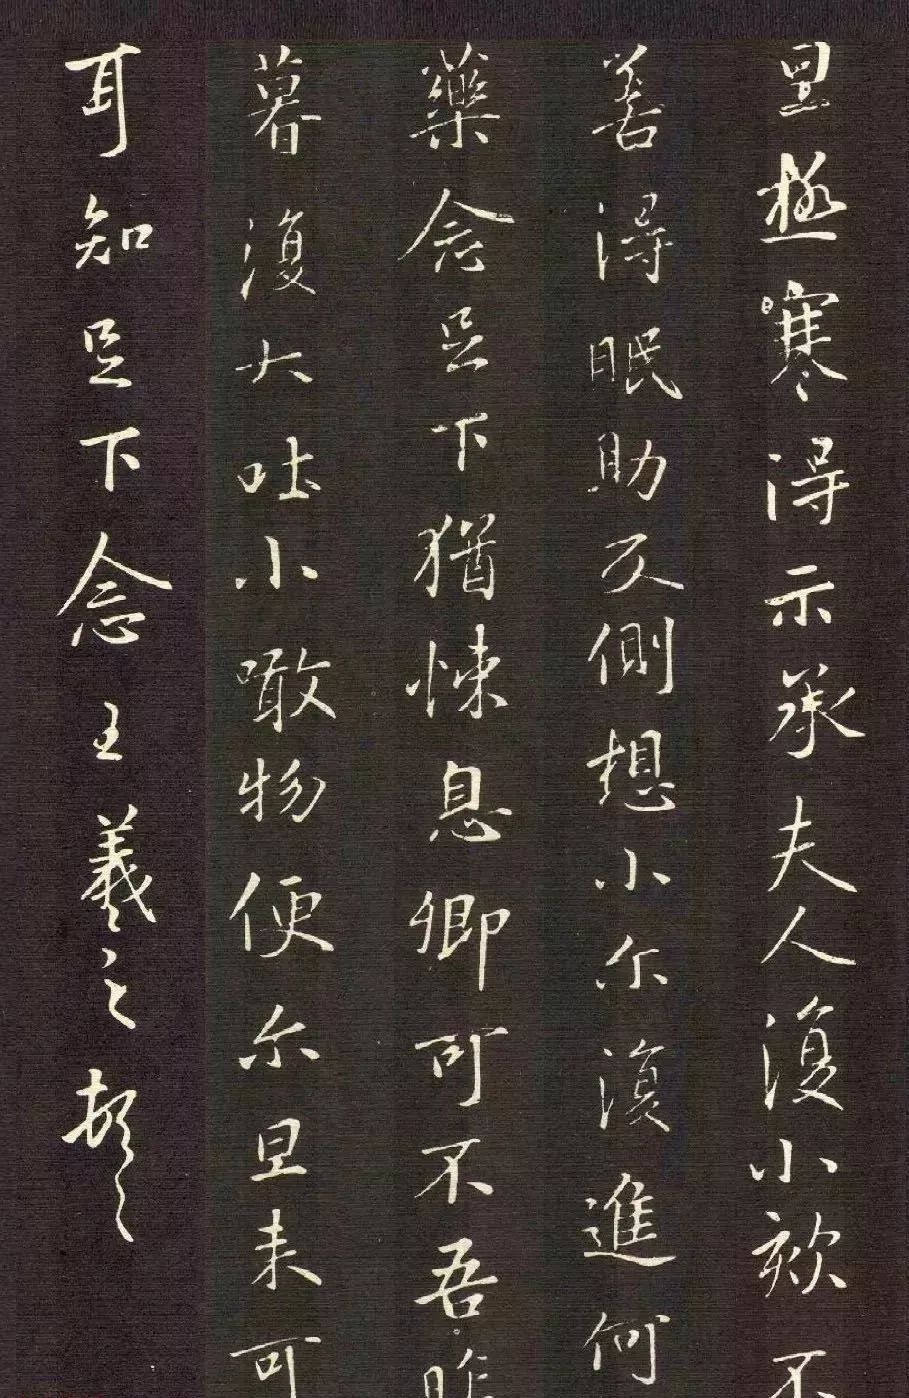 旦極寒得示承夫人復小欬不
善得眠助反側想小尔復進何
藥念足下猶悚息卿可不吾昨
暮復大吐小噉物便尔旦来可
耳知足下念王羲之頓首